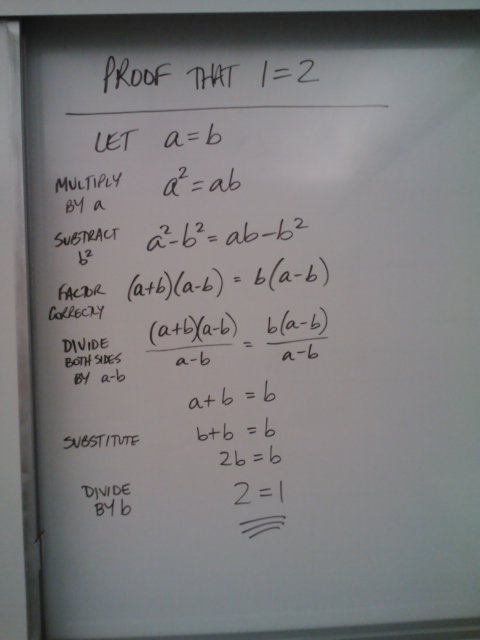 PROOF THAT 1=2
LET a=b
MULTIPLY BY a a²=ab
SUBTRACT b² a²-b²=ab-b²
FACTOR CORRECTLY (a+b)(a-b) = b(a-b)
DIVIDE BOTH SIDES BY a-b (a+b)(a-b)/a-b = b(a-b)/a-b
a+b = b
SUBSTITUTE b+b = b
2b=b
DIVIDE BY b 2=1